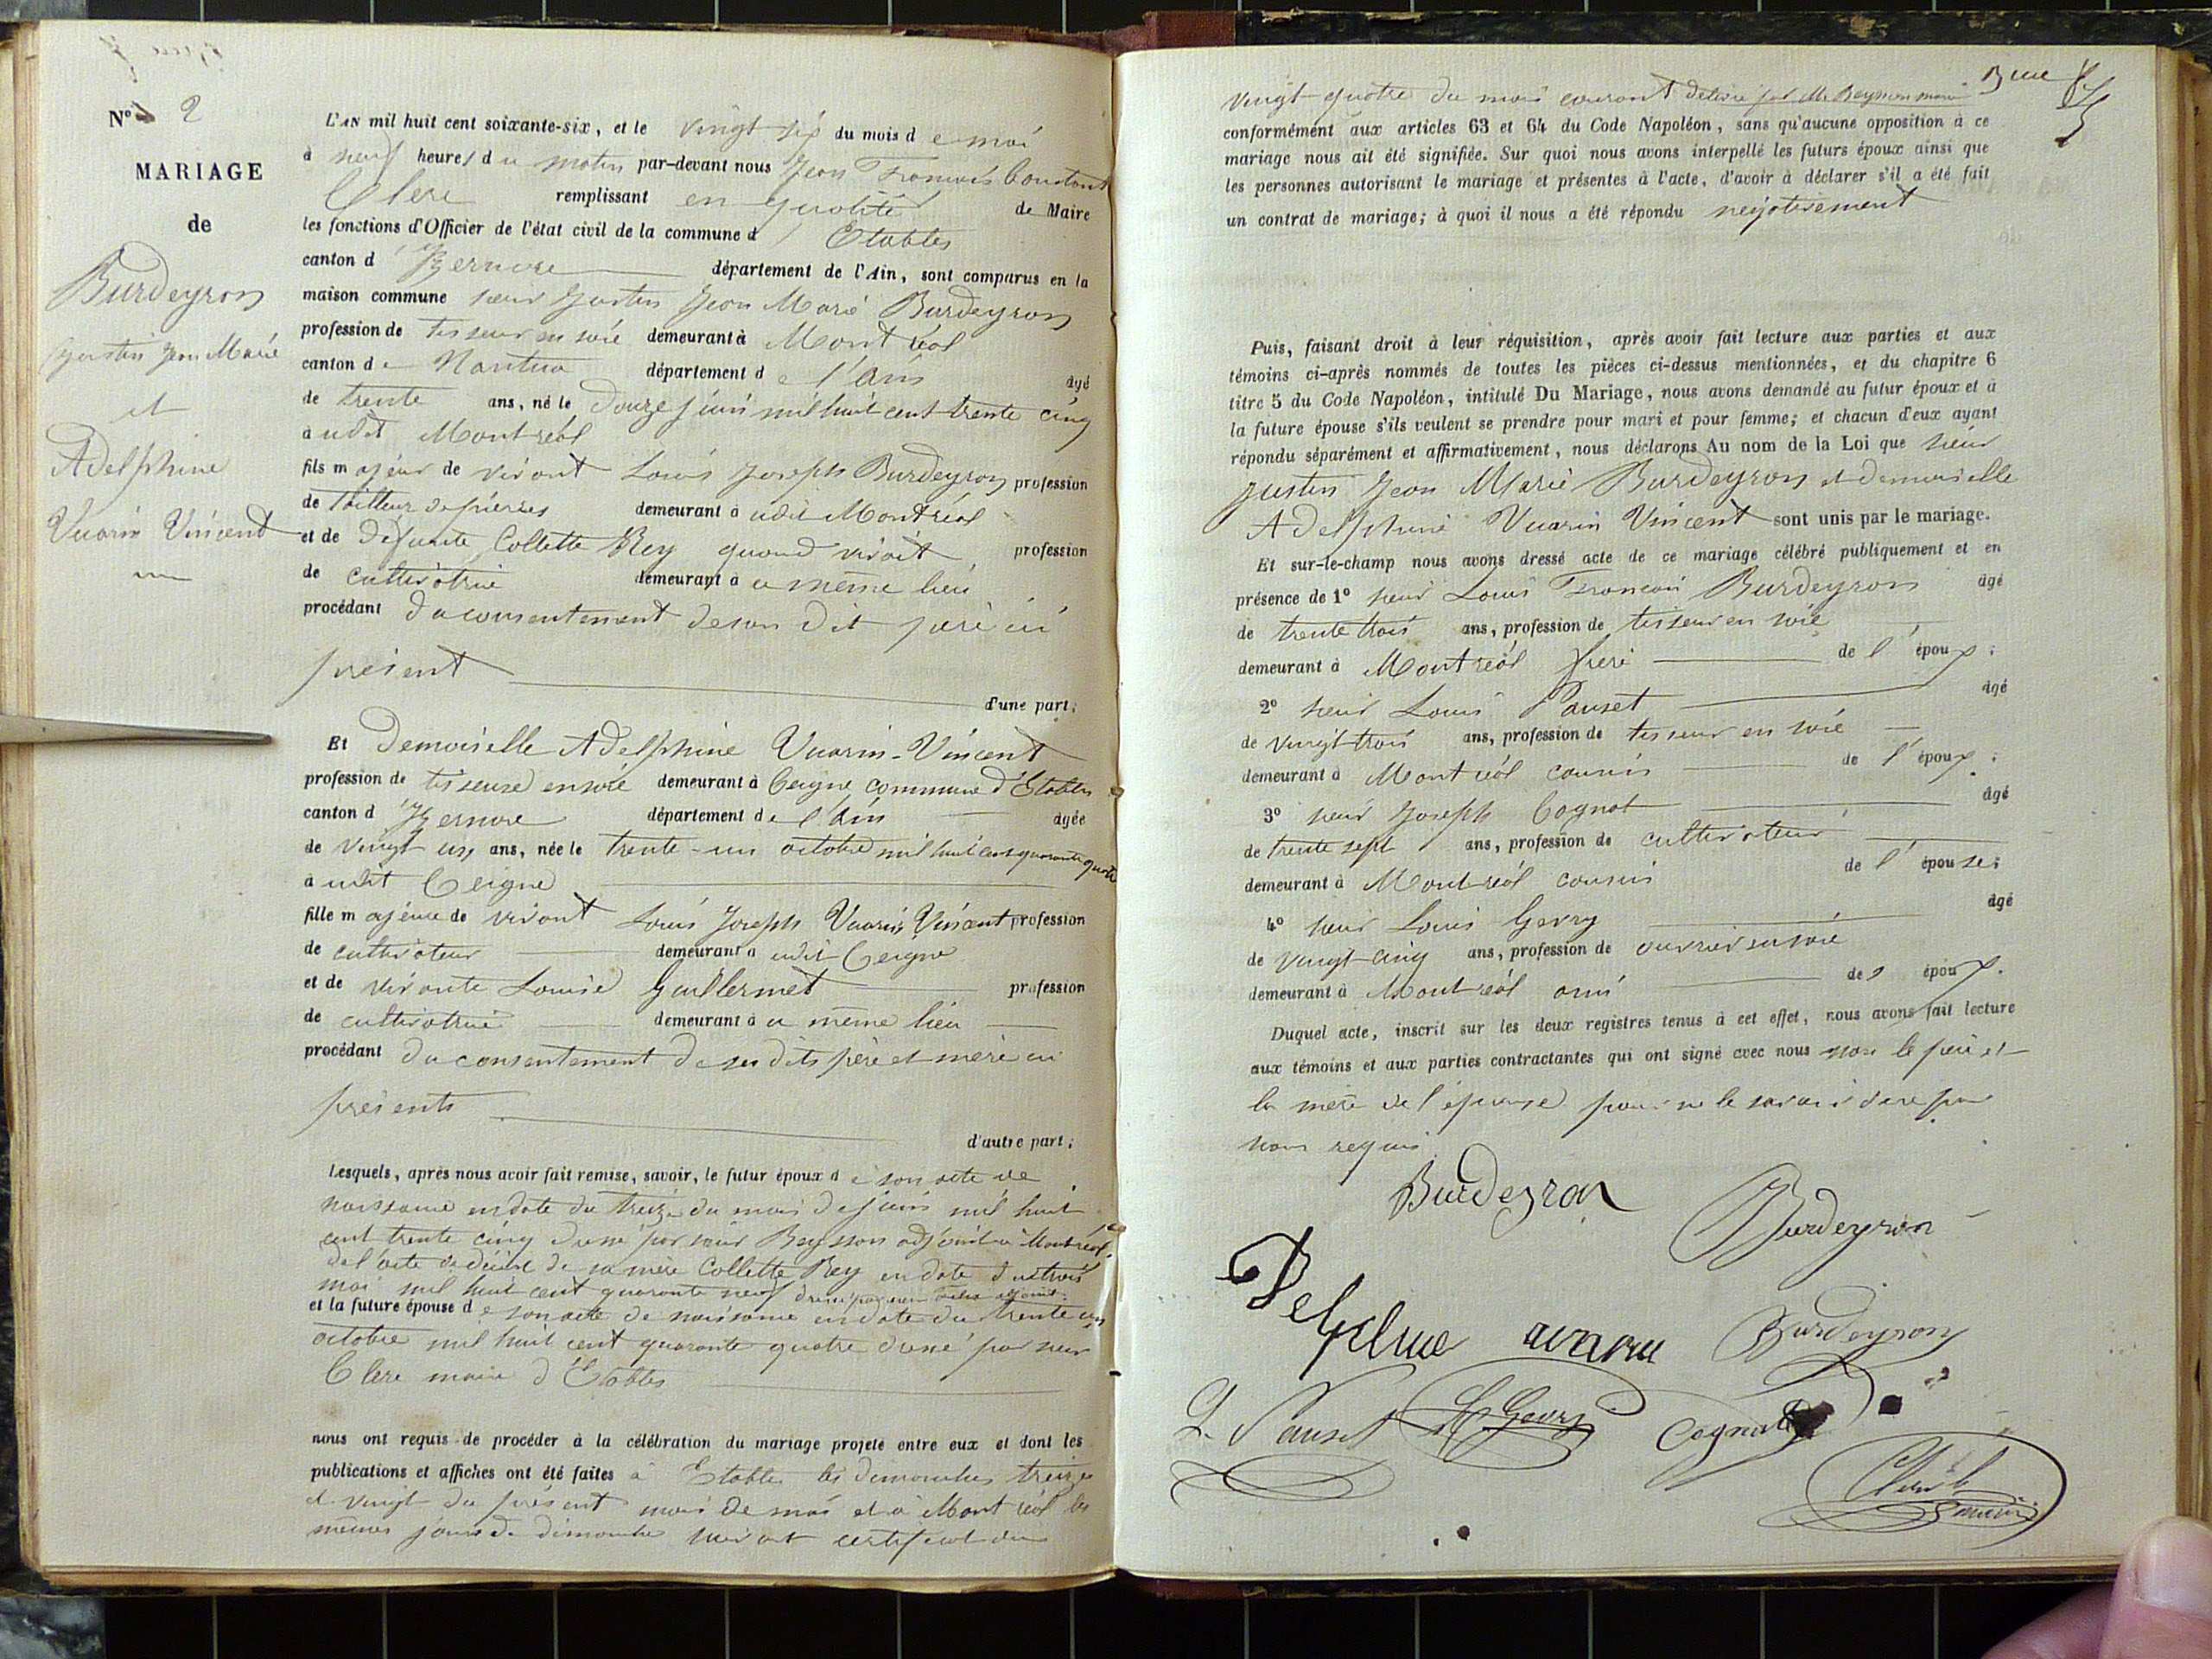 N° 2
MARIAGE
de
Burdeyron
Justin Jean Marie
et
Adelphine
Vuarin Vincent
L'AN mil huit cent soixante-six, et le vingt six du mois de mai
à neuf heures du matin par-devant nous Jean François Constant
Clerc remplissant en qualité de Maire
les fonctions d'Officier de l'état civil de la commune d'Etables
canton d'Izernore département de l'Ain, sont comparus en la
maison commune sieur Justin Jean Marie Burdeyron
profession de tisseur en soie demeurant à Montréal
canton de Nantua département de l'Ain âgé
de trente ans, né le douze juin mil huit cent trente cinq
audit Montréal
fils majeur de vivant Louis Joseph Burdeyron profession
de tailleur de pierres demeurant audit Montréal
et de défunte Collette Rey quand vivait profession
de cultivatrice demeurant au même lieu
procédant du consentement de son dit père ici
présent
d'une part;
Et Demoiselle Adelphine Vuarin-Vincent
profession de tisseuse en soie demeurant à Ceigne commune d'Etables
canton d'Izernore département de l'Ain âgée
de vingt un ans, née le trente-un octobre mil huit cent quarante quatre
audit Ceigne
fille majeure de vivant Louis Joseph Vuarin Vincent profession
de cultivateur demeurant audit Ceigne
et de vivante Louise Guillermet profession
de cultivatrice demeurant au même lieu
procédant du consentement de ses dits père et mère ici
présents
d'autre part;
Lesquels, après nous avoir fait remise, savoir, le futur époux de son acte de
naissance en date du treize du mois de juin mil huit
cent trente cinq dressé par sieur Beysson adjoint à Montréal,
de l'acte de décès de sa mère Collette Rey en date du trois
mai mil huit cent quarante neuf dressé par sieur adjoint
et la future épouse de son acte de naissance en date du trente un
octobre mil huit cent quarante quatre dressé par sieur
Clerc maire d'Etables
nous ont requis de procéder à la célébration du mariage projeté entre eux et dont les
publications et affiches ont été faites à Etables les dimanches treize
et vingt du présent mois de mai et à Montréal les
mêmes jours de dimanche suivant certificat du
vingt-quatre du mois courant délivré par Mr Beysson maire
conformément aux articles 63 et 64 du Code Napoléon, sans qu'aucune opposition à ce
mariage nous ait été signifiée. Sur quoi nous avons interpellé les futurs époux ainsi que
les personnes autorisant le mariage et présentes à l'acte, d'avoir à déclarer s'il a été fait
un contrat de mariage; à quoi il nous a été répondu négativement
Puis, faisant droit à leur réquisition, après avoir fait lecture aux parties et aux
témoins ci-après nommés de toutes les pièces ci-dessus mentionnées, et du chapitre 6
titre 5 du Code Napoléon, intitulé Du Mariage, nous avons demandé au futur époux et à
la future épouse s'ils veulent se prendre pour mari et pour femme; et chacun d'eux ayant
répondu séparément et affirmativement, nous déclarons Au nom de la Loi que sieur
Justin Jean Marie Burdeyron et demoiselle
Adelphine Vuarin Vincent sont unis par le mariage.
Et sur-le-champ nous avons dressé acte de ce mariage célébré publiquement et en
présence de 1° sieur Louis François Burdeyron âgé
de trente trois ans, profession de tisseur en soie
demeurant à Montréal frère de l'époux;
2° sieur Louis Pauset âgé
de vingt trois ans, profession de tisseur en soie
demeurant à Montréal cousin de l'époux;
3° sieur Joseph Cognat âgé
de trente sept ans, profession de cultivateur
demeurant à Montréal cousin de l'épouse;
4° sieur Louis Gevry âgé
de vingt-cinq ans, profession de ouvrier en soie
demeurant à Montréal ami des époux.
Duquel acte, inscrit sur les deux registres tenus à cet effet, nous avons fait lecture
aux témoins et aux parties contractantes qui ont signé avec nous non le père et
la mère de l'épouse pour ne le savoir de ce par
nous requis
Burdeyron
Burdeyron
Burdeyron
L. Pauset
L Gevry
Cognat
Clerc
maire